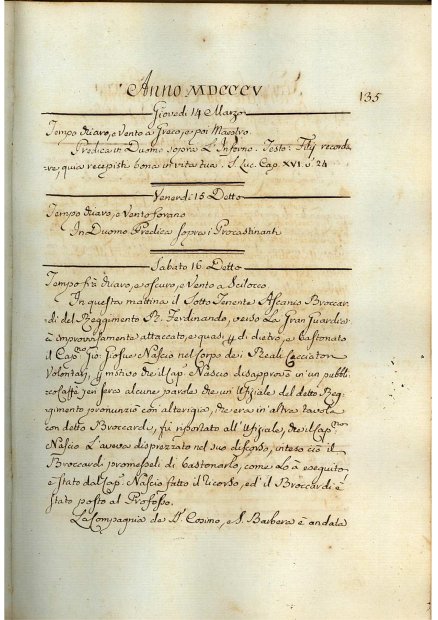 Anno MDCCCV
135
Giovedi 14 Marzo
Tempo chiaro, e Vento a Greco, e poi Maestro.
Predica in Duomo sopra L'Inferno. Testo: Fily recorda-
re, quia recepisti bona in vita tua. S. Luc. Cap. XVI. v. 24
Venerdi 15 Detto
Tempo chiaro, e Vento forano
In Duomo Predica sopra i Procastinanti
Sabato 16 Detto
Tempo frà chiaro, e oscuro, e Vento a Scilocco
In questa mattina il Sotto Tenente Ascanio Broccar-
di del Reggimento R. Ferdinando, verso La Gran Guardia
è improvisamente attaccato, e quasi p di dietro, e bastonato
il Cap. Gio: Nascio nel Corpo dei Reali Cacciatori
Volontarj, p motivo che il Cap. Nascio disapprovò in un pubbli-
co Caffè jeri sera alcune parole che un Ufiziale del detto Reg-
gimento pronunziò con alterigia, che era in altra tavola
con detto Broccardi, fù riportato all'Ufiziale, che il Cap.
Nascio L'aveva disprezzato nel suo discorso, inteso ciò il
Broccardi promesseli di bastonarlo, come Lo à eseguito
è stato dal Cap. Nascio fatto il ricorso, ed il Broccardi è
stato posto al Profosso.
La Compagnia de S. Cosimo, e S. Barbera è andata